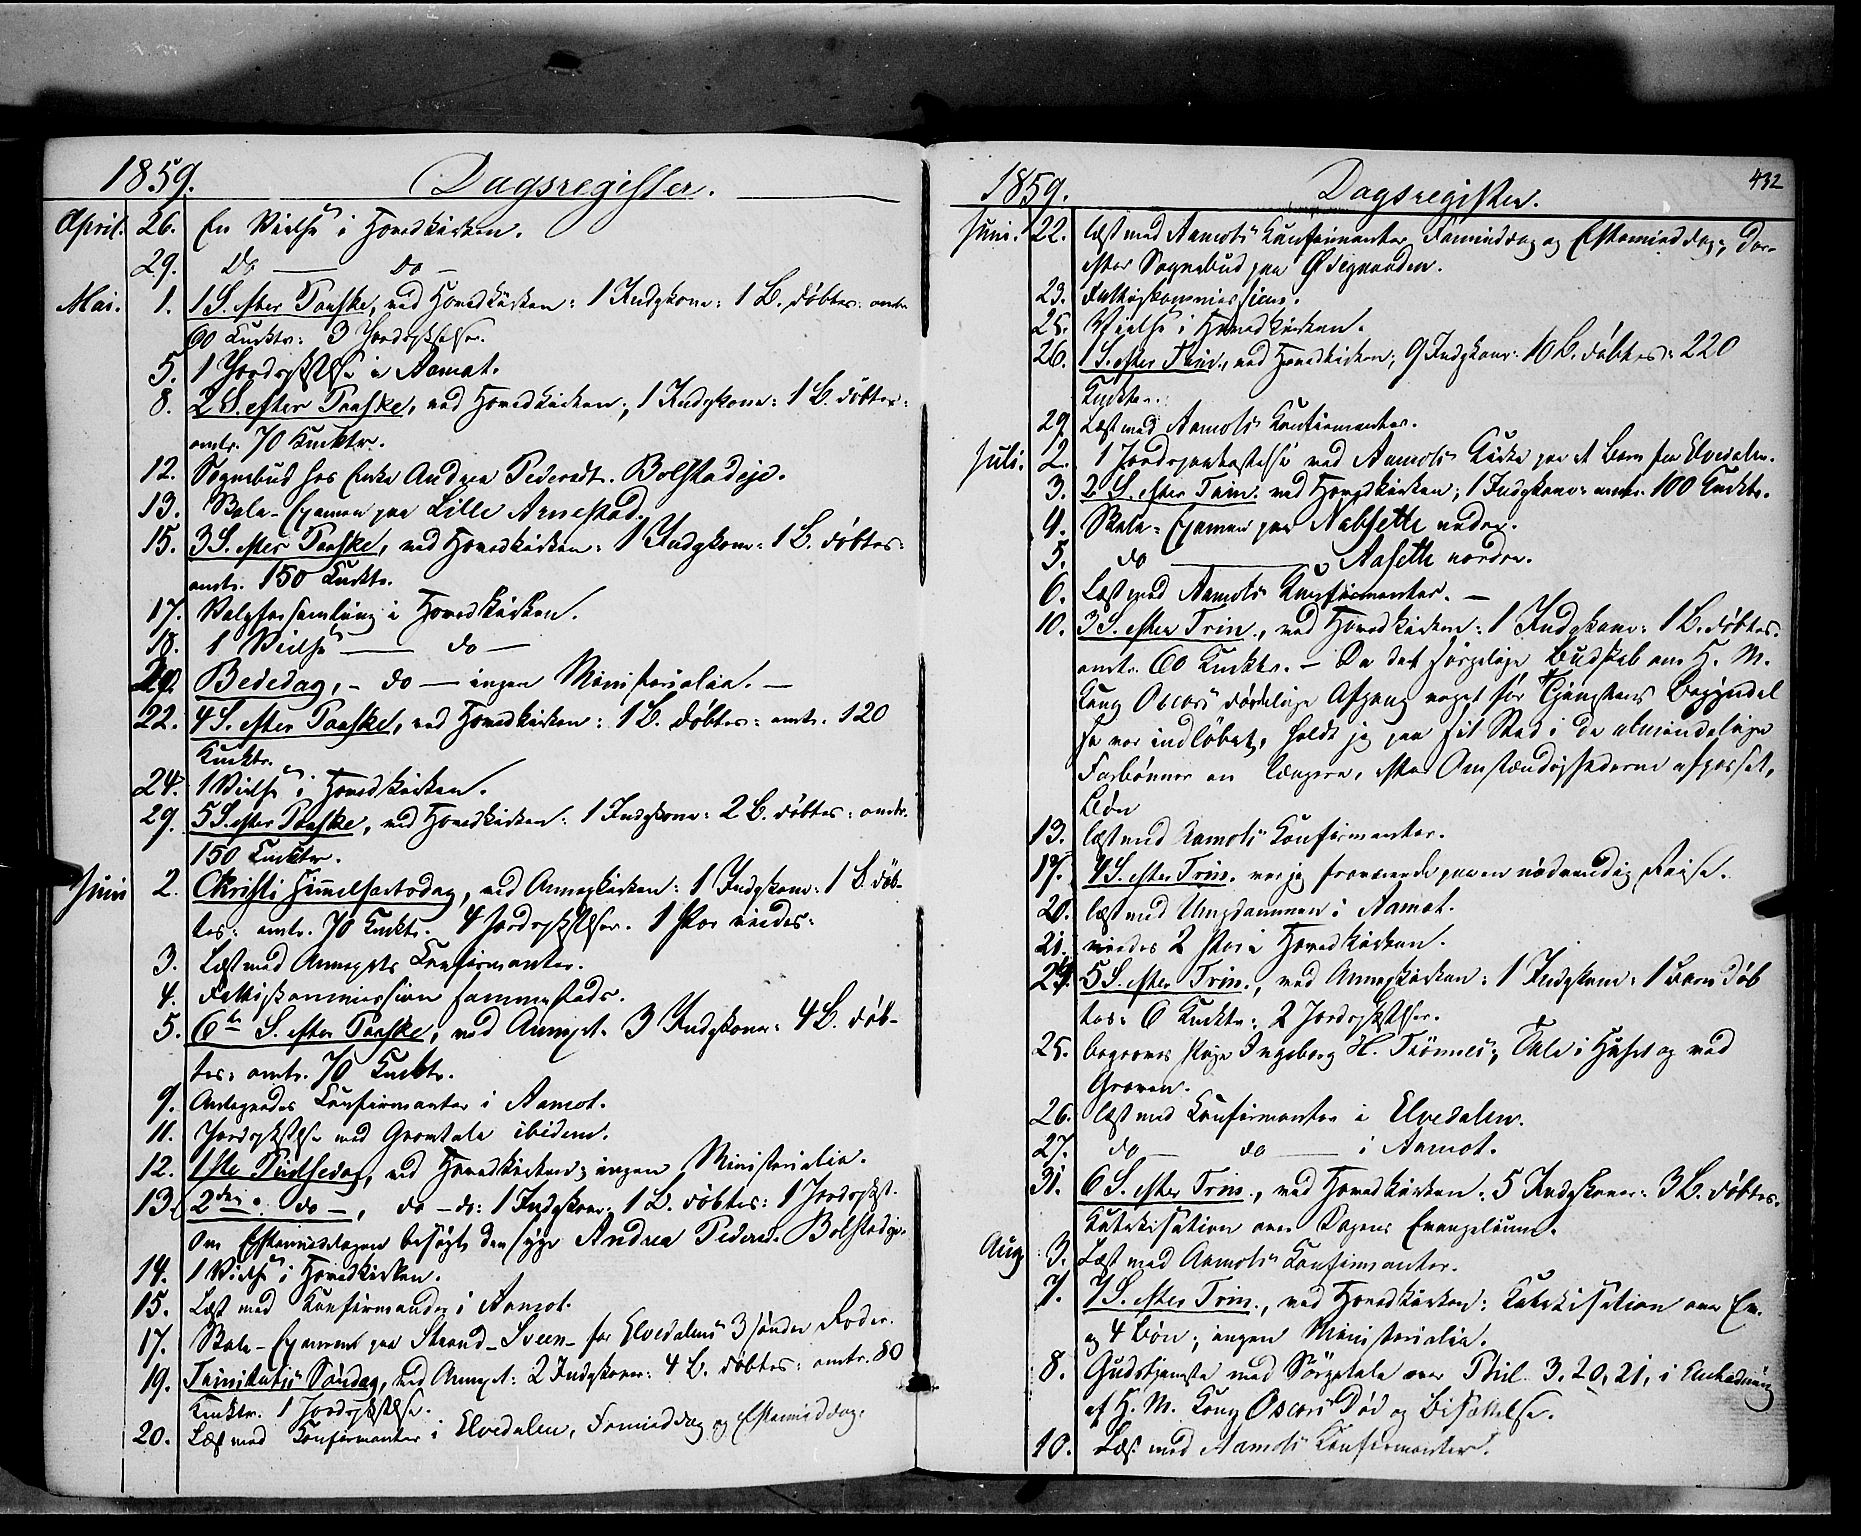 1859. Dagsregister.
April. 26. En Vielse i Hovedkirken.
29. do — do —
Mai. 1. 1 S. efter Paaske, ved Hovedkirken: 1 Indgkone: 1 B. døbtes: omtr.
60 Cuktr: 3 Jordspkstelser.
5. 1 Jordspkstelse i Aamot.
8. 2 S. efter Paaske, ved Hovedkirken; 1 Indgkone: 1 B. døbtes:
omtr. 70 Cucktr.
12. Sognebud hos Enke Andrea Pedersdt. Bolstadeje.
13. Skole-Examen paa Lille Arnestad.
15. 3 S. efter Paaske, ved Hovedkirken: 1 Indgkone: 1 B. døbtes:
omtr. 150 Cucktr.
17. Valgforsamling i Hovedkirken.
18. 1 Vielse — do —
20. Bededag, - do — ingen Ministerialia. —
22. 4 S. efter Paaske, ved Hovedkirken: 1 B. døbtes: omtr. 120
Cucktr.
24. 1 Vielse i Hovedkirken.
29. 5 S. efter Paaske, ved Hovedkirken: 1 Indgkone: 2 B. døbtes: omtr.
150 Cucktr.
Juni 2. Christi Himmelfartsdag, ved Annexkirken: 1 Indgkone: 1 B. døb-
tes: omtr. 70 Cucktr. 4 Jordspkstelser. 1 Par viedes:
3. Læst med Annexets Confirmanter.
4. Fattigkommission sammesteds.
5. 6te S. efter Paaske, ved Annext. 3 Indgkoner: 4 B. døb-
tes: omtr. 70 Cucktr.
9. Antegnedes Confirmanter i Aamot.
11. Jordspkstelse med Gravtale ibidem.
12. 1ste Pintsedag, ved Hovedkirken; ingen Ministerialia.
13. 2den do —, do — do: 1 Indgkone: 1 B. døbtes: 1 Jordspkst.
Om Eftermiddagen besøgt den syge Andrea Pedersd. Bolstadeje.
14. 1 Vielse i Hovedkirken.
15. Læst med Confirmander i Aamot.
17. Skole-Examen paa Strand-Sveen- for Elvedalens 3 søndre Roder.
19. Trinitatis Søndag, ved Annext: 2 Indgkoner: 4 B. døbtes: omtr. 80
Cucktr. 1 Jordspkstelse.
20. Læst med Confirmanter i Elvedalen, Formiddag og Eftermiddag.
1859. Dagsregister. 432
Juni. 22. læst med Aamots Confirmanter Formiddag og Eftermiddag; der-
efter Sognebud paa Ødegaarden.
23. Fattigkommission.
25. Vielse i Hovedkirken.
26. 1 S. efter Trin., ved Hovedkirken; 9 Indgkoner: 10 B. døbtes: 220
Cucktr.
29. Læst med Aamots Confirmanter.
Juli. 2. 1 Jordspaakastelse ved Aamots Kirke paa et Barn fra Elvedalen.
3. 2 S. efter Trin. ved Hovedkirken; 1 Indgkone: omtr. 100 Cucktr.
4. Skole-Examen paa Nabsette nedre.
5. do — Aasette nordre.
6. Læst med Aamots Confirmanter. —
10. 3 S. efter Trin., ved Hovedkirken: 1 Indgkone: 1 B. døbtes:
omtr. 60 Cucktr. — Da det sørgelige Budskab om H. M.
Kong Oscars dødelige Afgang noget før Tjenestens Begyndel
se var indløbet, holdt jeg paa sit Sted i de almindelige
Forbønner en længere, efter Omstændighederne afpasset,
Bøn
13. læst med Aamots Confirmanter.
17. 4 S. efter Trin. var jeg fraværende paa en nødvendig Reise.
20. læst med Ungdommen i Aamot.
21. viedes 2 Par i Hovedkirken.
24. 5 S. efter Trin., ved Annexkirken: 1 Indgkone: 1 Barn døb
tes: 6 Cucktr.: 2 Jordspkstelser.
25. begraves Pige Ingeborg H. Trönnes; Tale i Huset og ved
Graven.
26. læst med Confirmanter i Elvedalen.
27. do — do — i Aamot.
31. 6 S. efter Trin., ved Hovedkirken: 5 Indgkoner: 3 B. døbtes.
Catekisation over Dagens Evangelium.
Aug 3. Læst med Aamots Confirmanter.
7. 7 S. efter Trin., ved Hovedkirken: Catekisation over Ev.
og 4 Bøn; ingen Ministerialia.
8. Gudstjeneste med Sørgetale over Phil. 3, 20, 21, i Anledning
af H. M. Kong Oscars Død og Bisættelse.
10. Læst med Aamots Confirmanter.